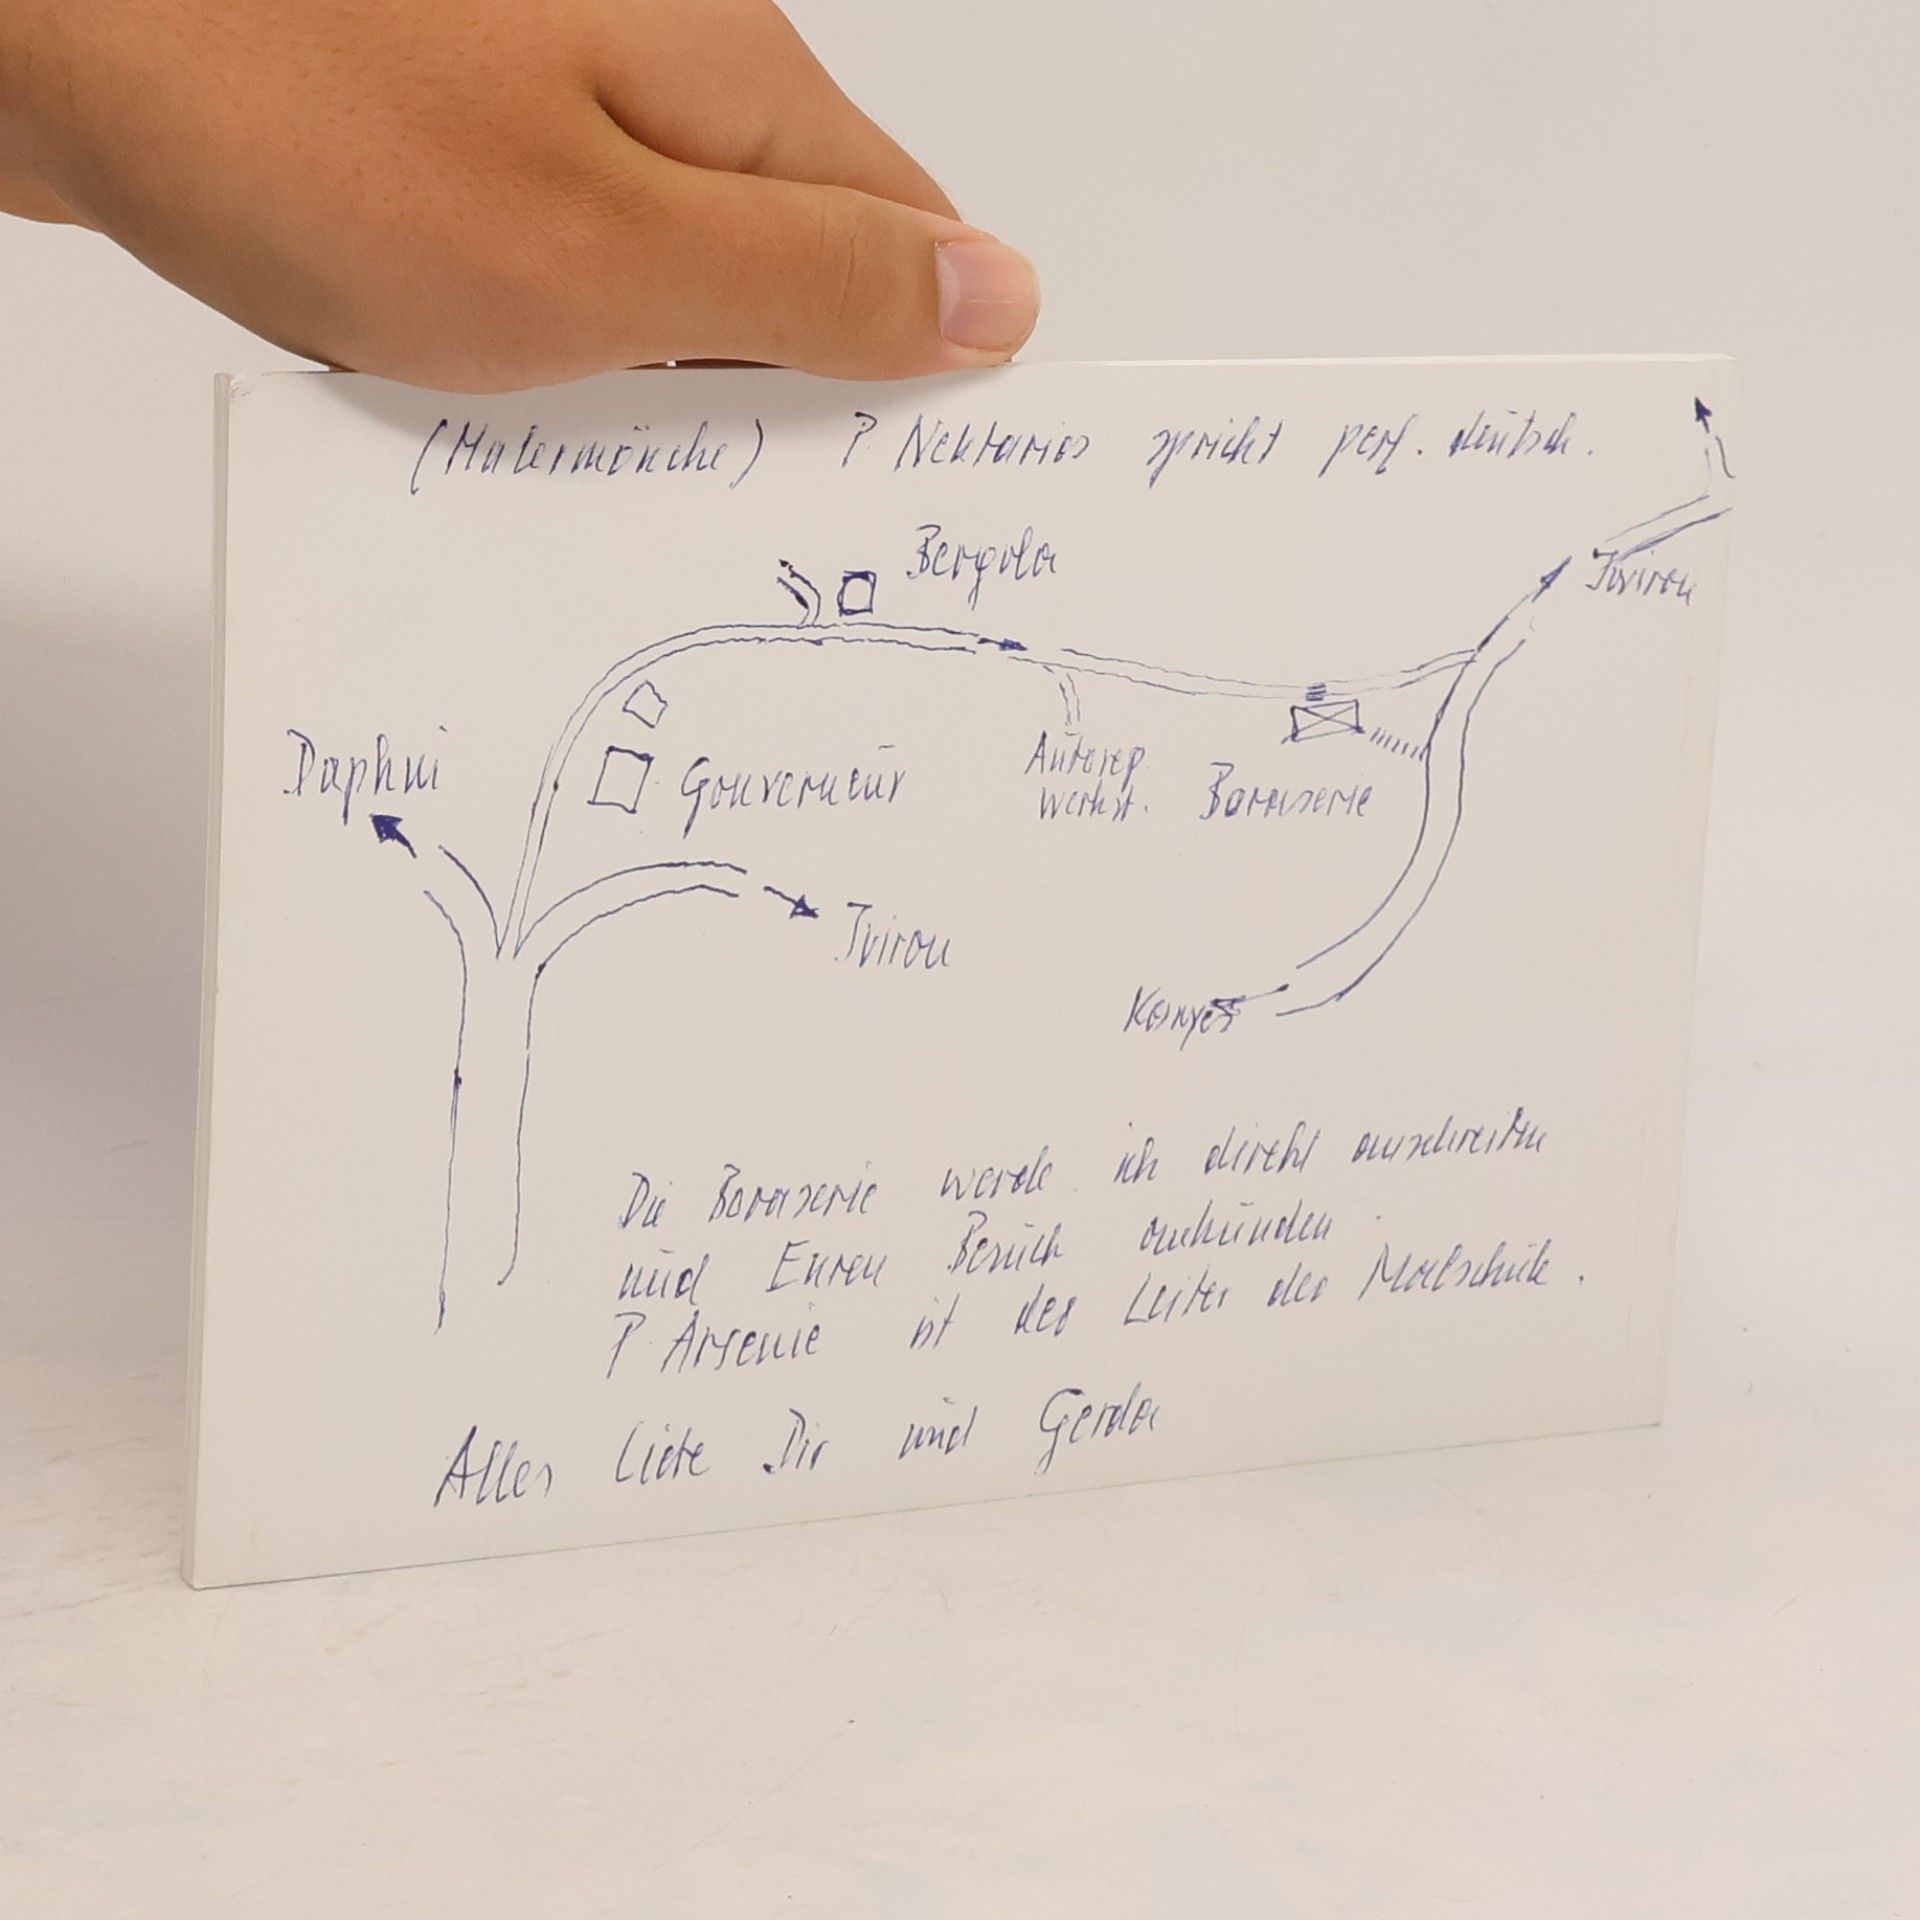 (Malermönche) P. Nektarios spricht perf. deutsch.
Bergola
Iviron
Daphni
Gouverneur
Autorep.
Werkst.
Boraserie
Iviron
Karyes
Die Boraserie werde ich direkt anschreiben
und Euren Besuch ankünden.
P. Arsenie ist der Leiter der Malschule.
Alles Liebe Dir und Gerda